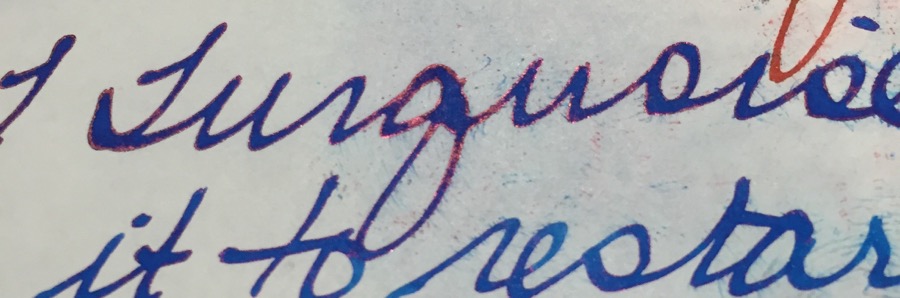 Turquoise
it to restar